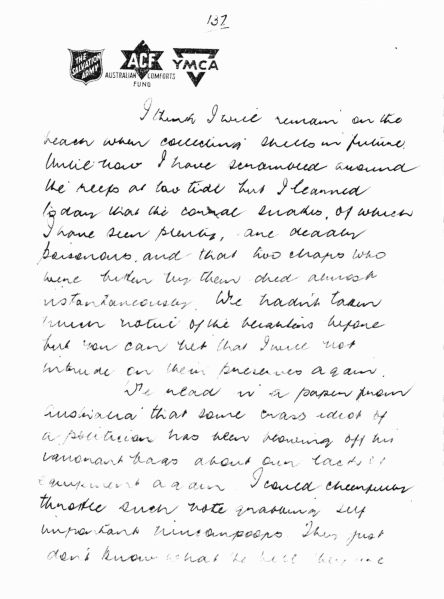 137
THE SALVATION ARMY
ACF
AUSTRALIAN COMFORTS FUND
YMCA
I think I will remain on the
beach when collecting shells in future.
Until now I have scrambled around
the reefs at low tide but I learned
today that the coral snakes, of which
I have seen plenty, are deadly
poisonous, and that two chaps who
were bitten by them died almost
instantaneously. We hadn't taken
much notice of the beighters before
but you can bet that I will not
intrude on their preserves again.
We read in a paper from
Australia that some crass idiot of
a politician has been blowing off his
ignorant bags about our lack of
equipment again. I could cheerfully
throttle such vote grabbing self
important nincompoops They just
don't know what the hell they are